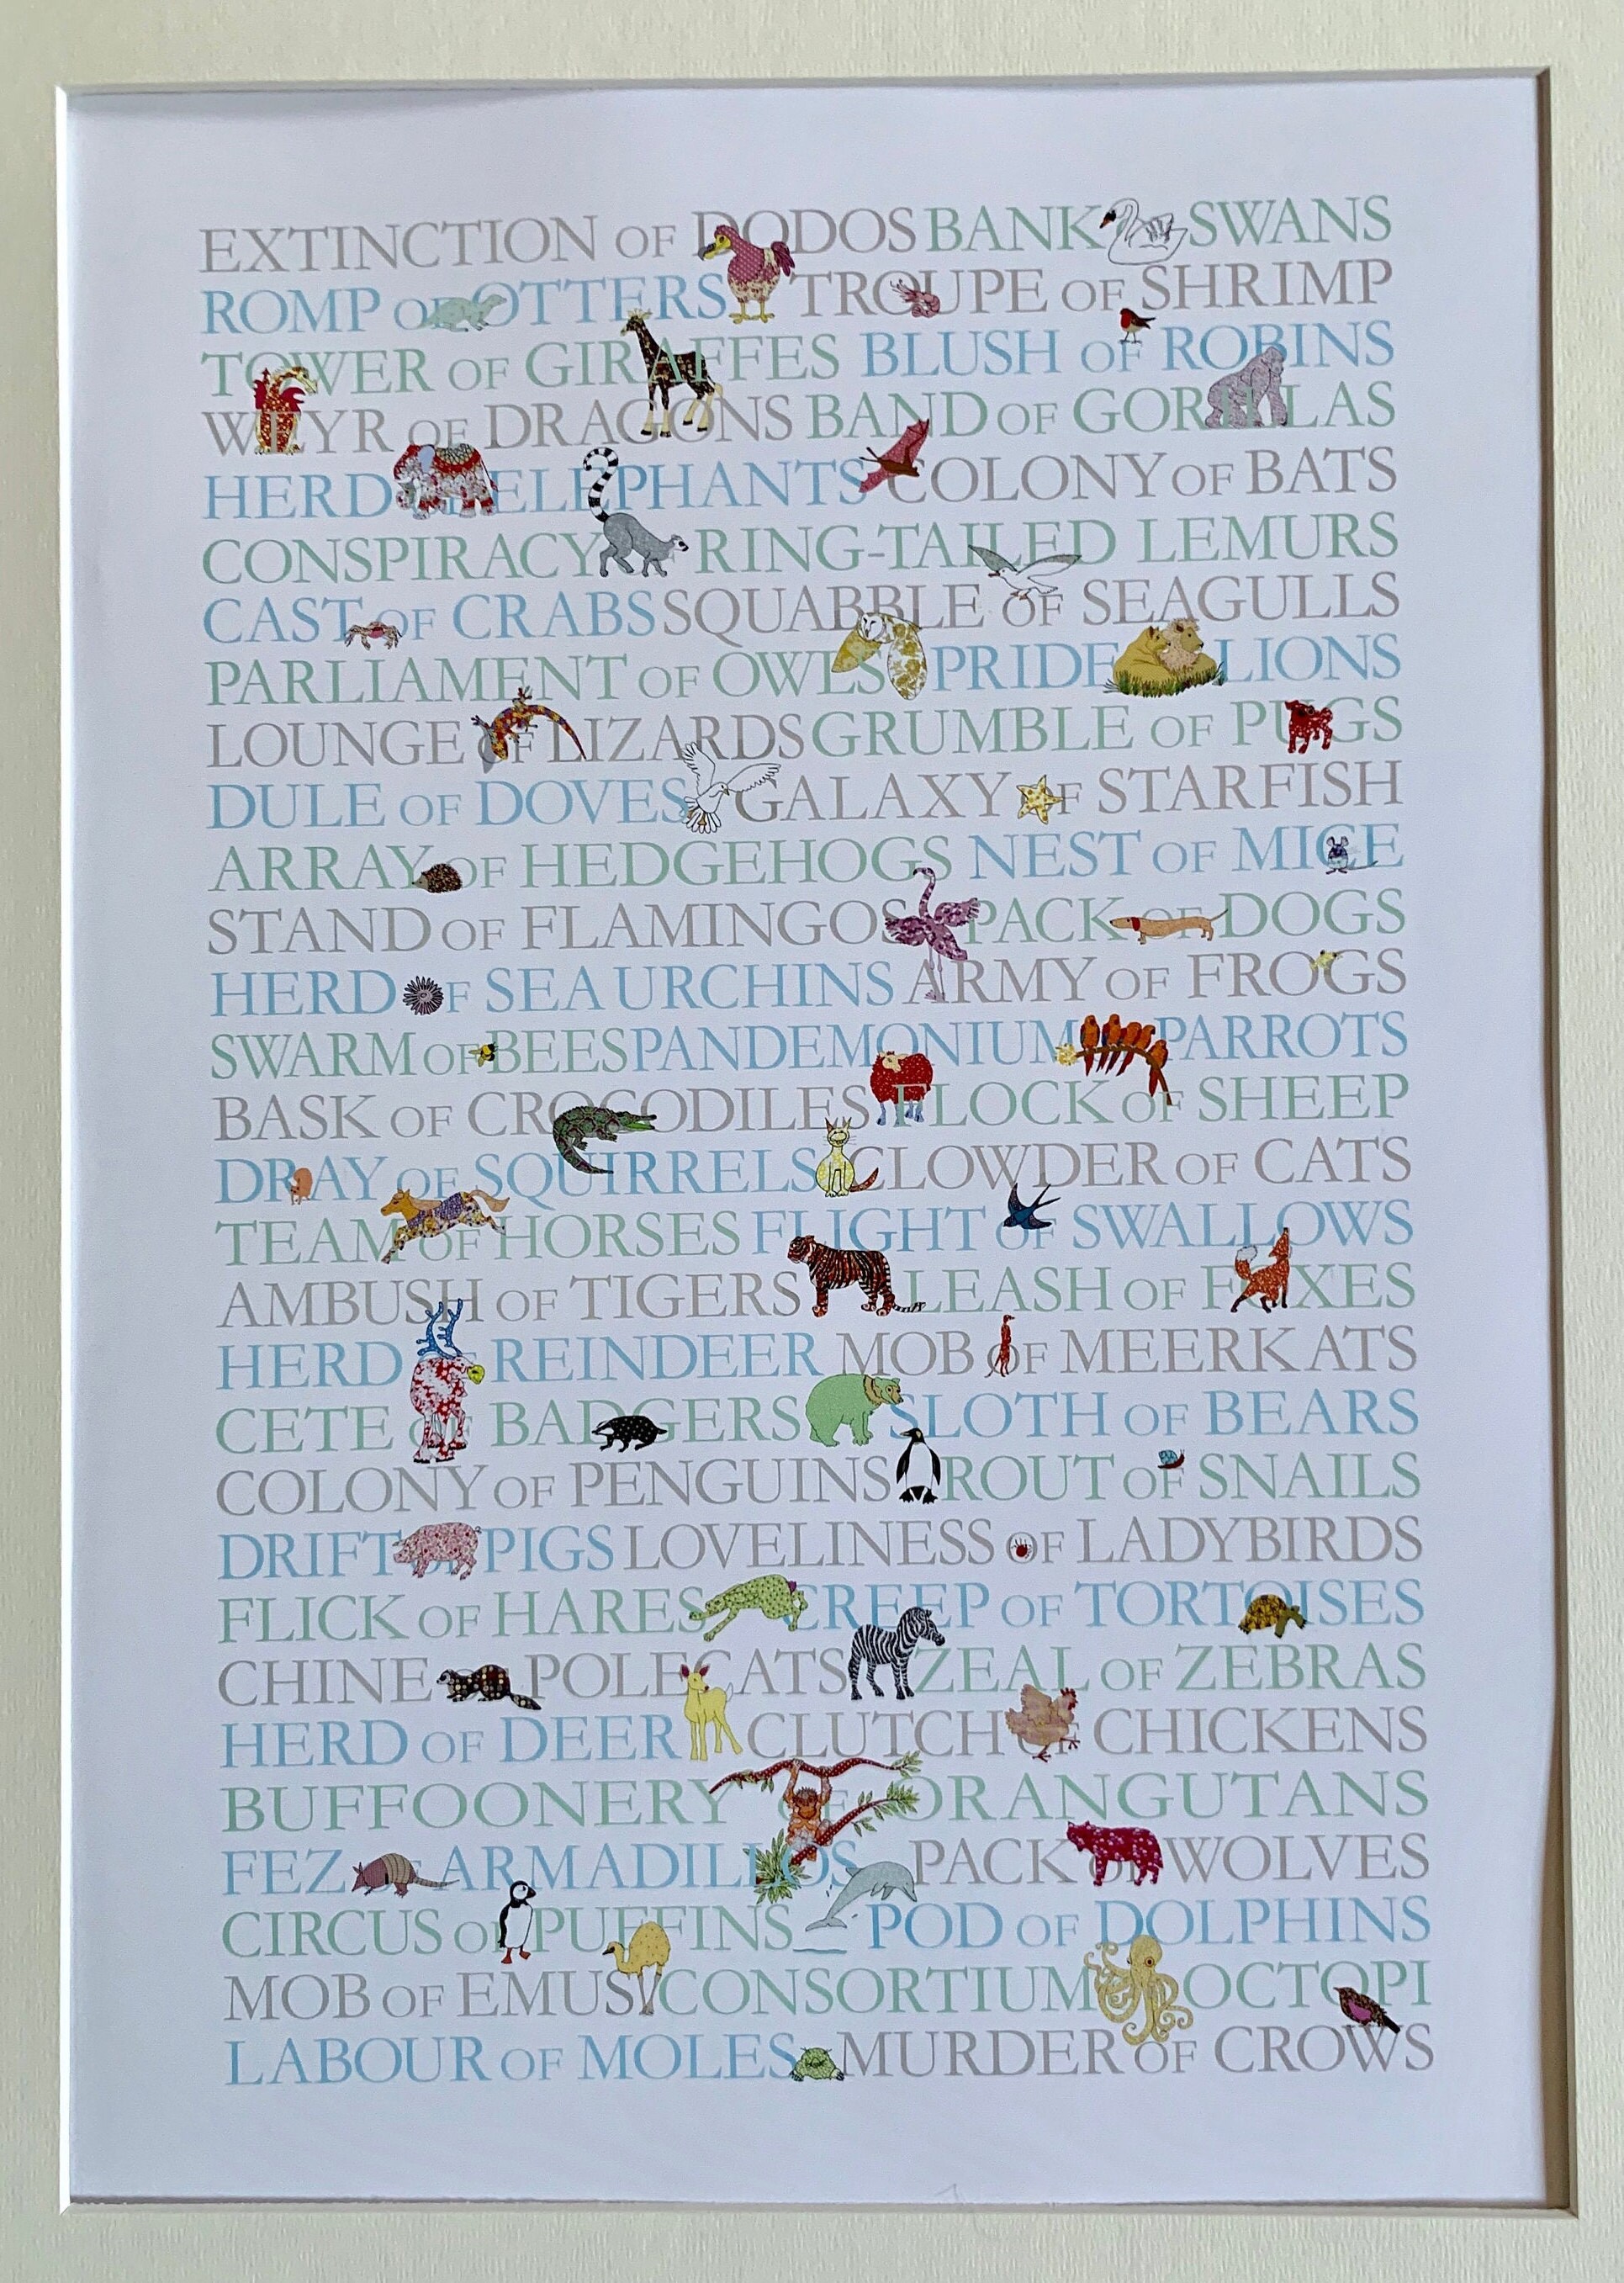 EXTINCTION OF DODOS BANK SWANS
ROMP OF OTTERS TROUPE OF SHRIMP
TOWER OF GIRAFFES BLUSH OF ROBINS
WEYR OF DRAGONS BAND OF GORILLAS
HERD OF ELEPHANTS COLONY OF BATS
CONSPIRACY OF RING-TAILED LEMURS
CAST OF CRABS SQUABBLE OF SEAGULLS
PARLIAMENT OF OWLS PRIDE LIONS
LOUNGE OF LIZARDS GRUMBLE OF PUGS
DULE OF DOVES GALAXY OF STARFISH
ARRAY OF HEDGEHOGS NEST OF MICE
STAND OF FLAMINGOS PACK OF DOGS
HERD OF SEA URCHINS ARMY OF FROGS
SWARM OF BEES PANDEMONIUM PARROTS
BASK OF CROCODILES FLOCK OF SHEEP
DRAY OF SQUIRRELS CLOWDER OF CATS
TEAM OF HORSES FLIGHT OF SWALLOWS
AMBUSH OF TIGERS LEASH OF FOXES
HERD OF REINDEER MOB OF MEERKATS
CETE OF BADGERS SLOTH OF BEARS
COLONY OF PENGUINS ROUT OF SNAILS
DRIFT OF PIGS LOVELINESS OF LADYBIRDS
FLICK OF HARES CREEP OF TORTOISES
CHINE POLECATS ZEAL OF ZEBRAS
HERD OF DEER CLUTCH OF CHICKENS
BUFFOONERY OF ORANGUTANS
FEZ OF ARMADILLOS PACK OF WOLVES
CIRCUS OF PUFFINS POD OF DOLPHINS
MOB OF EMUS CONSORTIUM OCTOPI
LABOUR OF MOLES MURDER OF CROWS